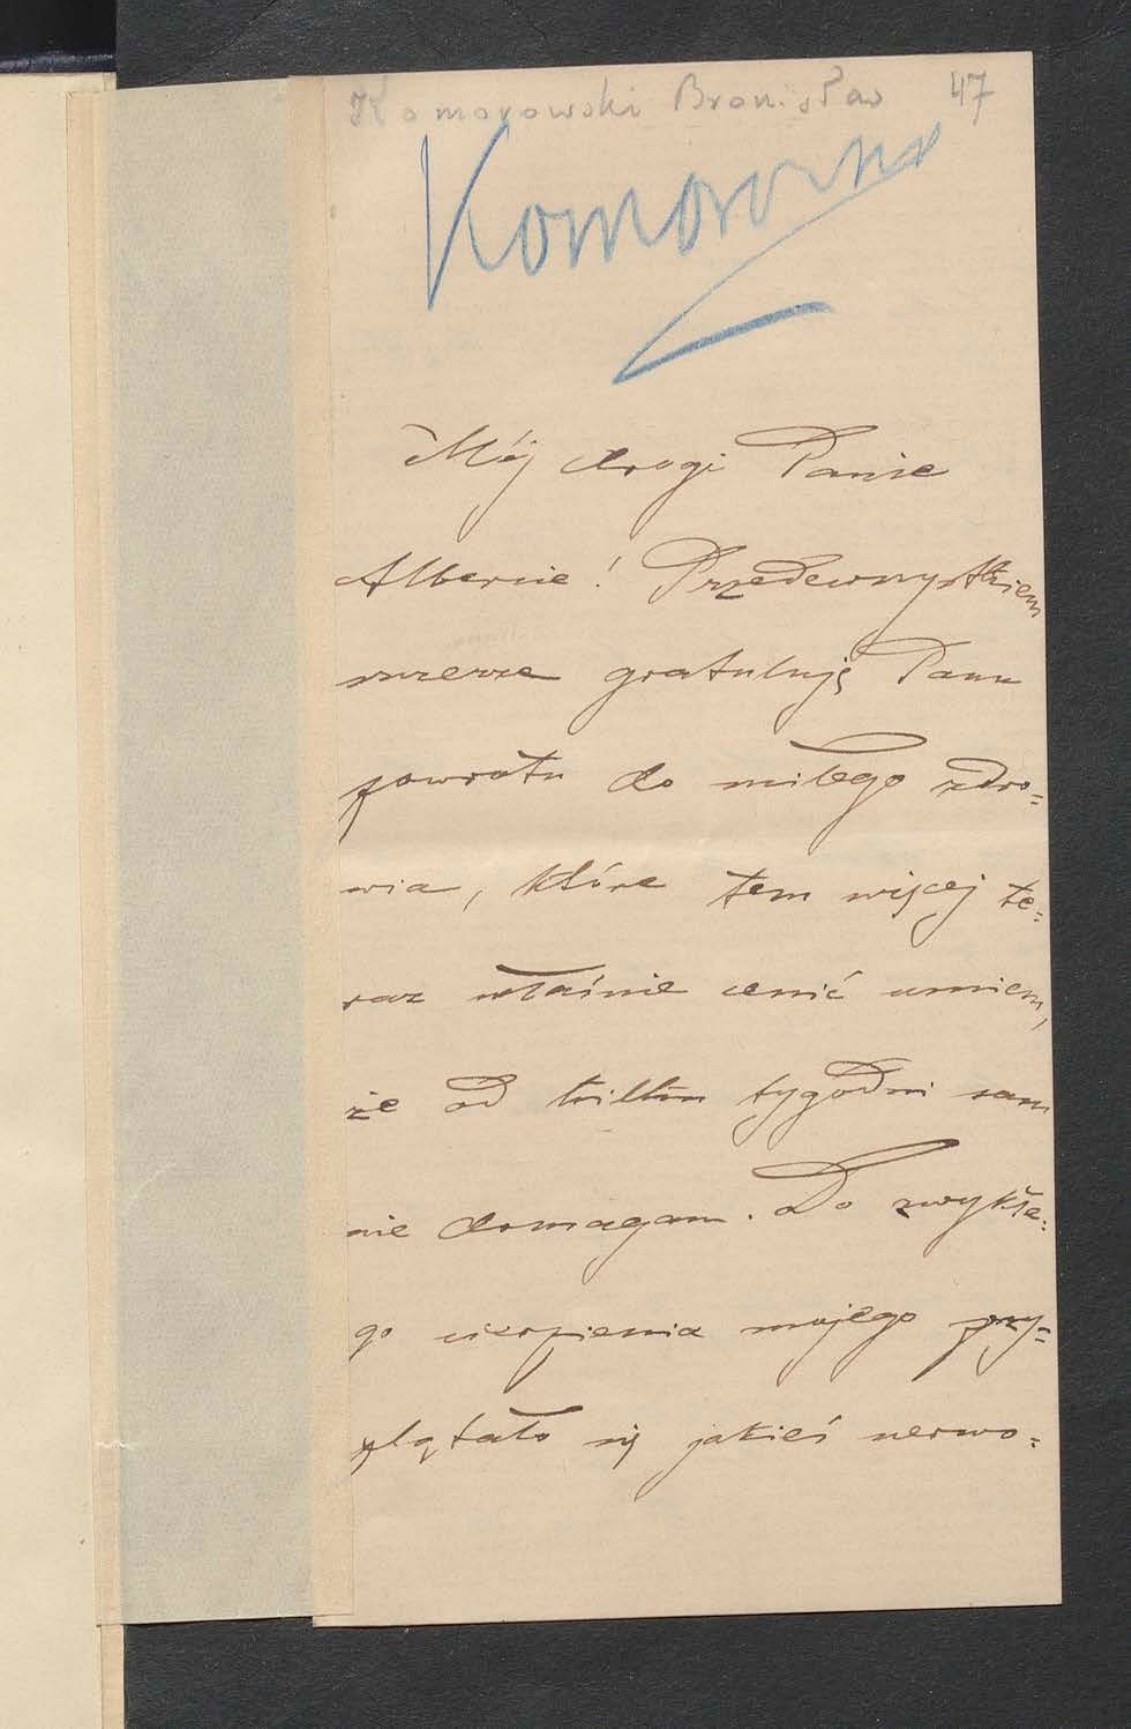 Komorowski Bronisław 47
Mój drogi Panie
Albercie! Przedewszystkiem
szczerze gratuluję Panu
powrotu do miłego zdro=
wia, które tem więcej te=
raz właśnie cenić umiem,
że od kilku tygodni sam
nie domagam. Do zwykłe=
go cierpienia mojego przy=
plątało się jakieś nerwo=